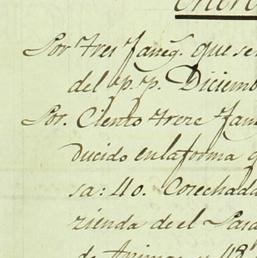 Por tres faneg.ˢ que se
del p.p. Diciemb
Por. Ciento trece fan
ducido enlaforma q
sa: 40. Cosechada
zienda de el Para
de Animas y 48